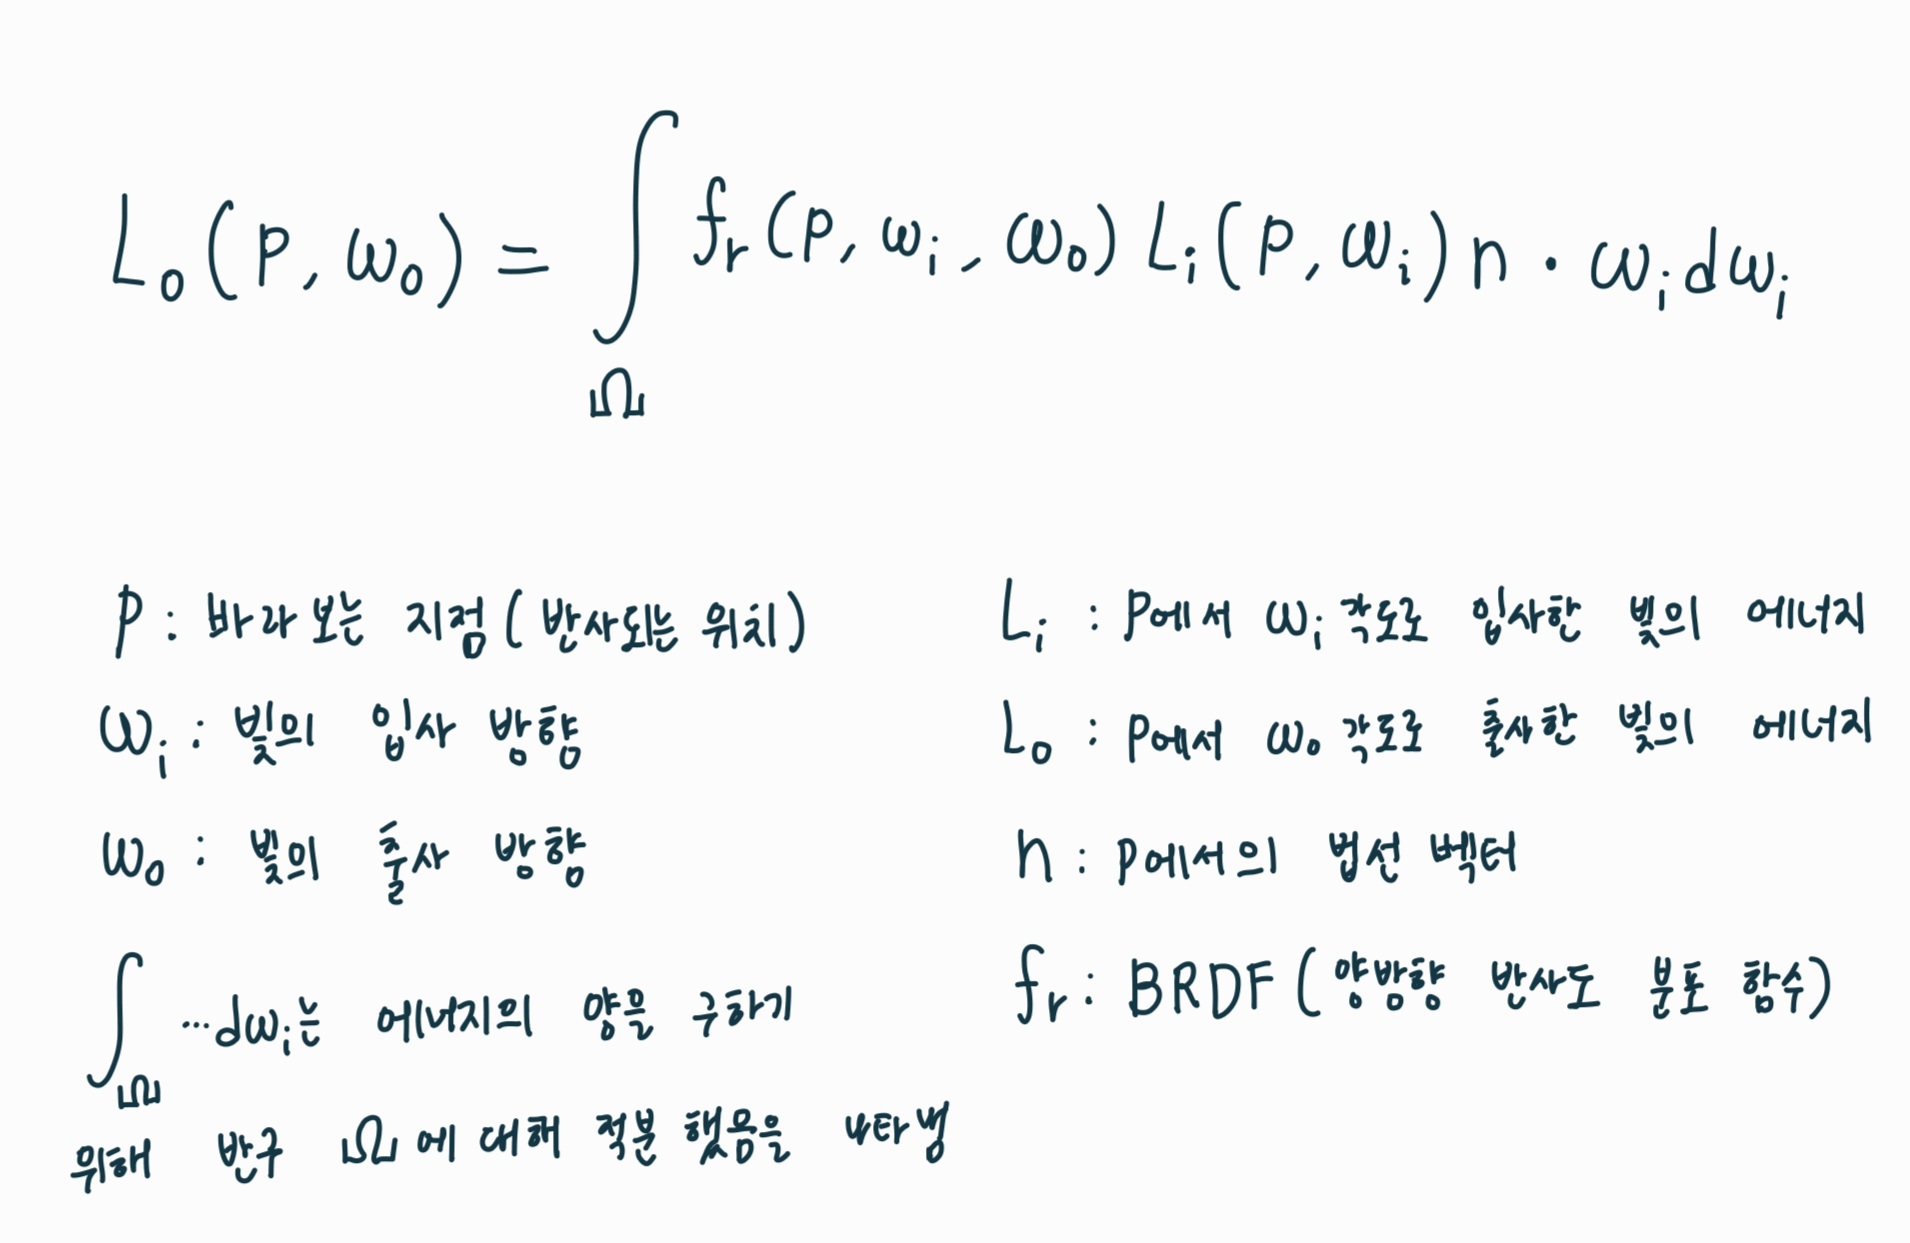 L₀(p, ω₀) = ∫Ω fᵣ(p, ωᵢ, ω₀) Lᵢ(p, ωᵢ) n · ωᵢ dωᵢ
p : 바라보는 지점 (반사되는 위치)
ωᵢ : 빛의 입사 방향
ω₀ : 빛의 출사 방향
∫Ω ⋯dωᵢ는 에너지의 양을 구하기
위해 반구 Ω에 대해 적분 했음을 나타냄
Lᵢ : p에서 ωᵢ 각도로 입사한 빛의 에너지
L₀ : p에서 ω₀ 각도로 출사한 빛의 에너지
n : p에서의 법선 벡터
fᵣ : BRDF (양방향 반사도 분포 함수)